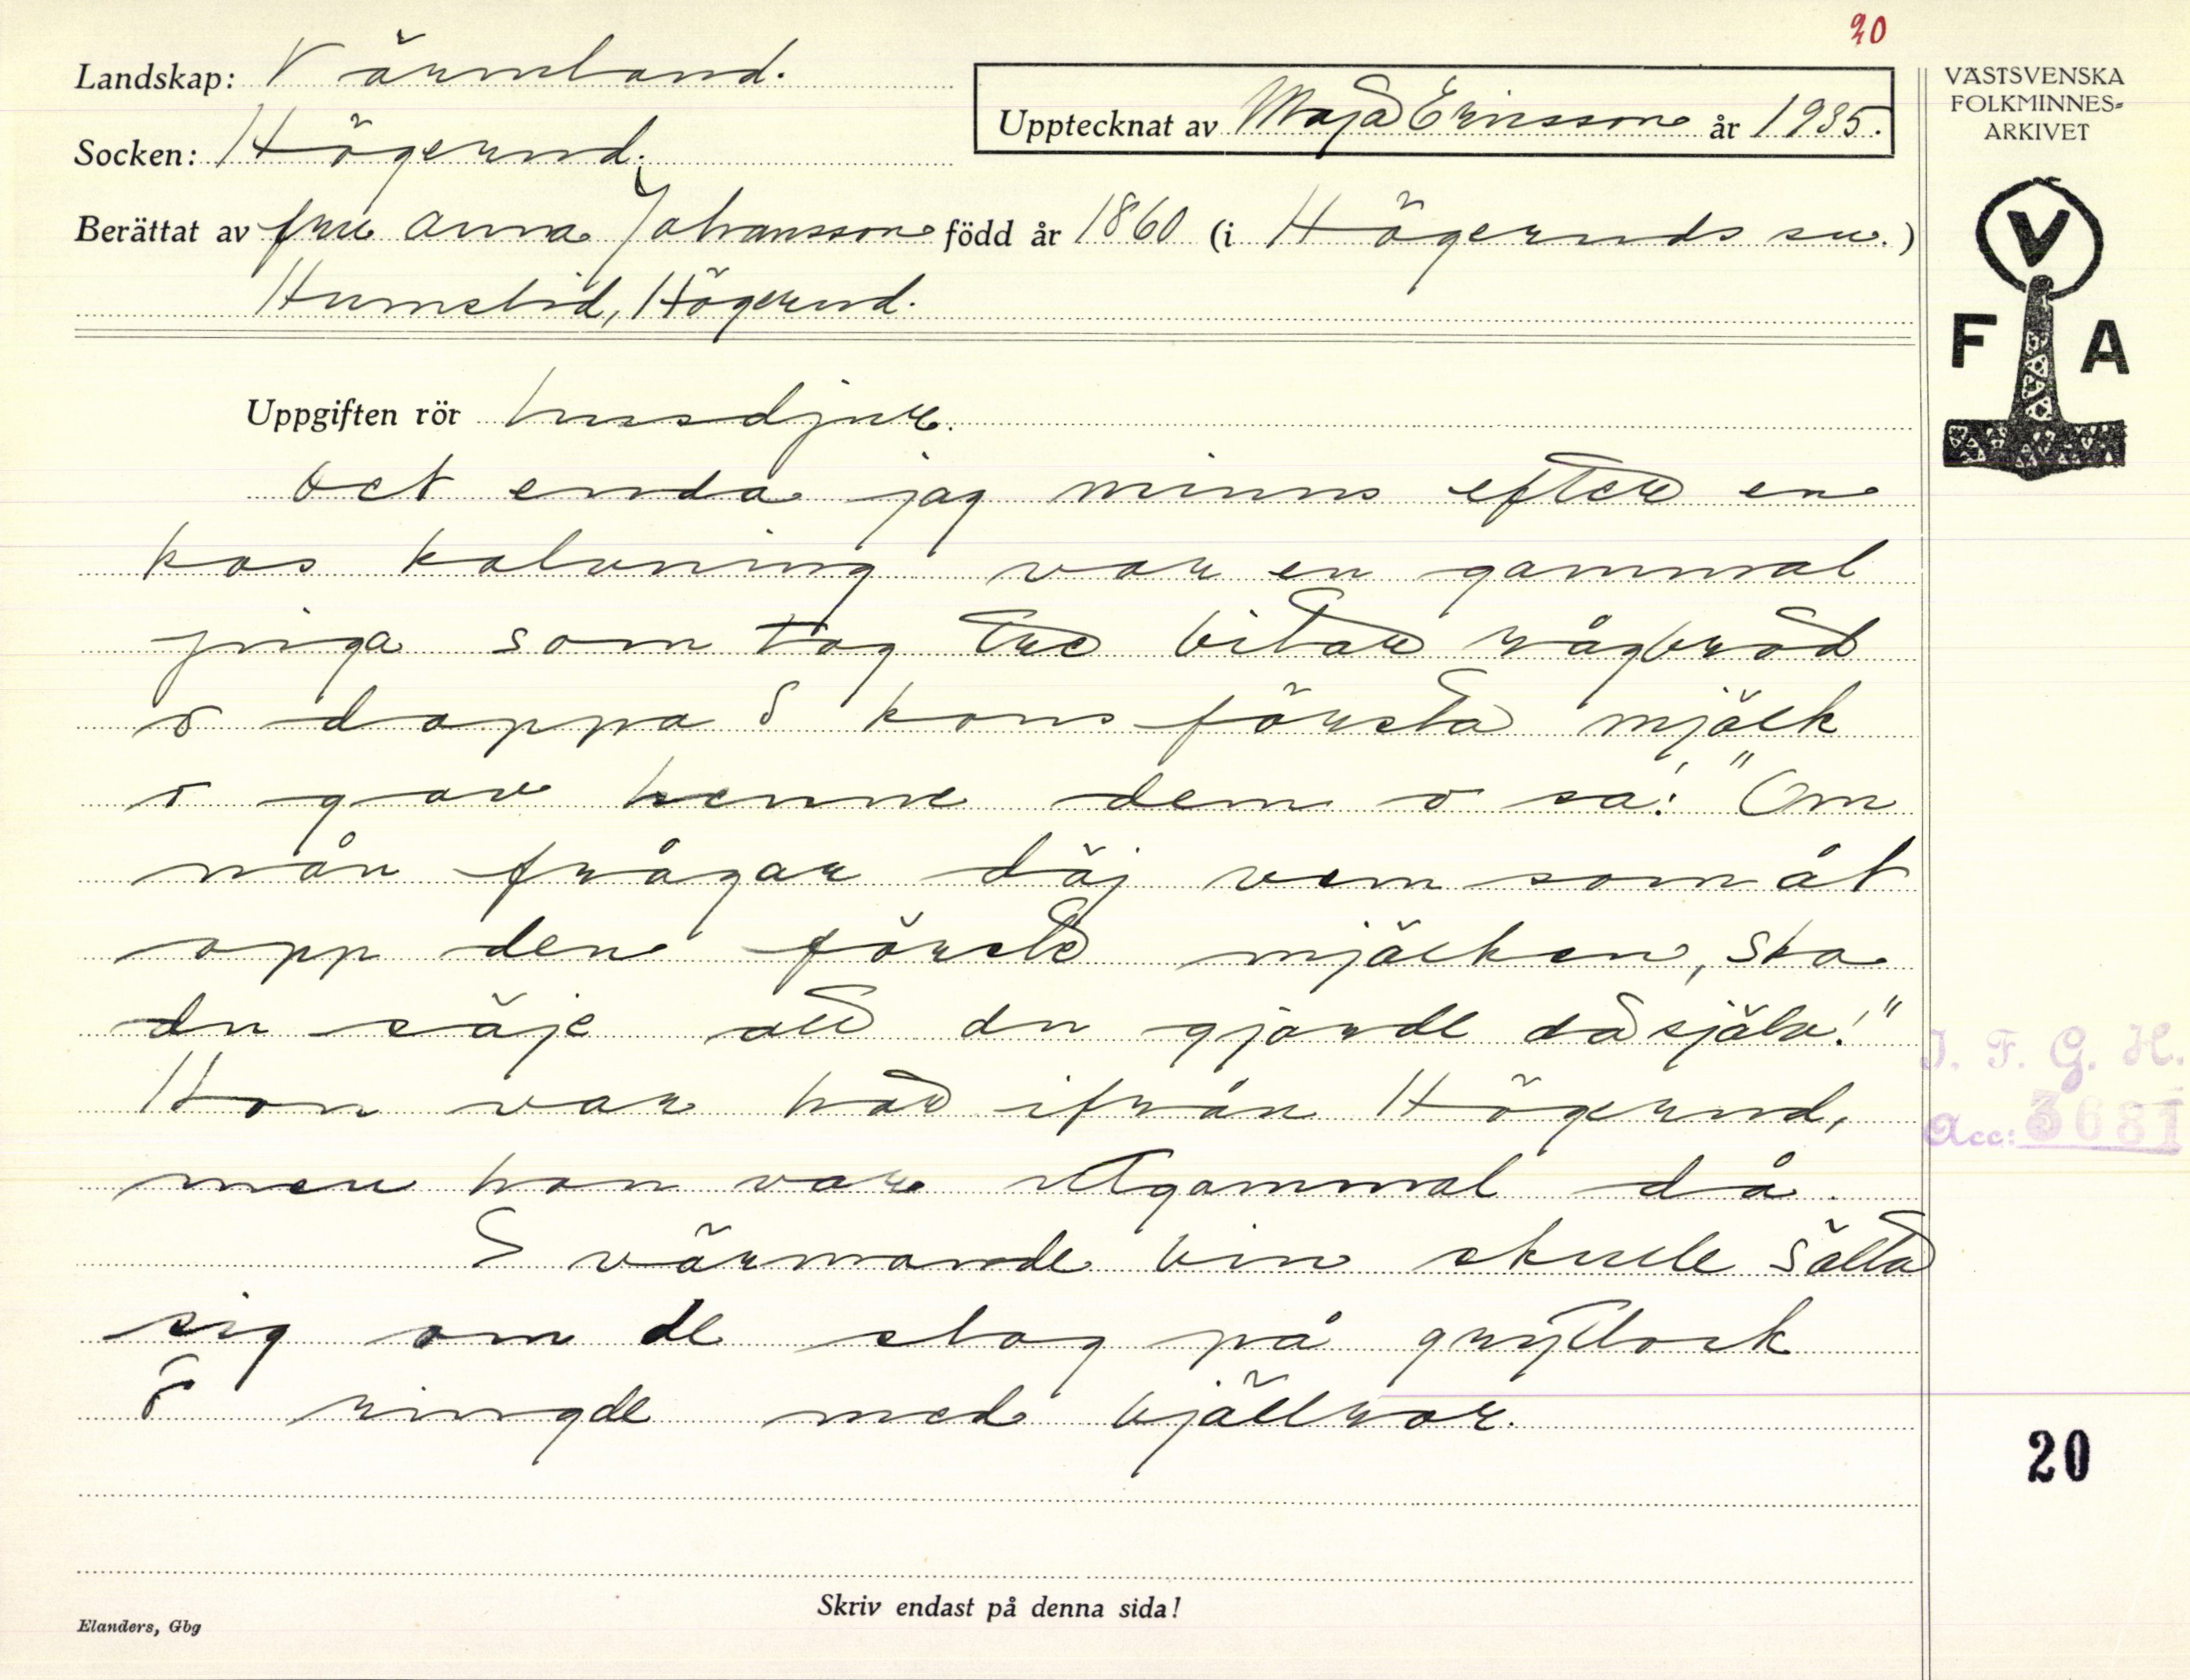 20
Landskap: Värmland.
VÄSTSVENSKA
FOLKMINNES-
ARKIVET
Upptecknat av Maja Ericsson år 1935.
Socken: Högerud.
Berättat av fru Anna Johansson född år 1860 (i Högeruds sn.)
Humslid, Högerud.
V
F A
Uppgiften rör husdjur.
Det enda jag minns efter en
kos kalvning var en gammal
piga som tog tre bitar rågbröd
o doppa i kons första mjölk
o gav henne dem o sa: "Om
nån frågar däj vem som åt
opp den förste mjölken, ska
du säje att du gjorde då själv!"
Hon var här ifrån Högerud,
men hon var utgammal då.
I. F. G. H.
Acc: 3681
Svärmande bin skulle sätta
sig om de slog på grytlock
o ringde med bjällror.
20
Skriv endast på denna sida!
Elanders, Gbg